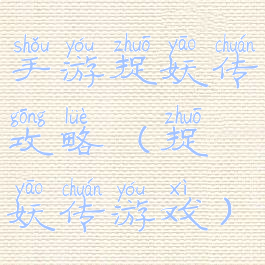 shǒu yóu zhuō yāo chuán
手游捉妖传
gōng luè zhuō
攻略（捉
yāo chuán yóu xì
妖传游戏）